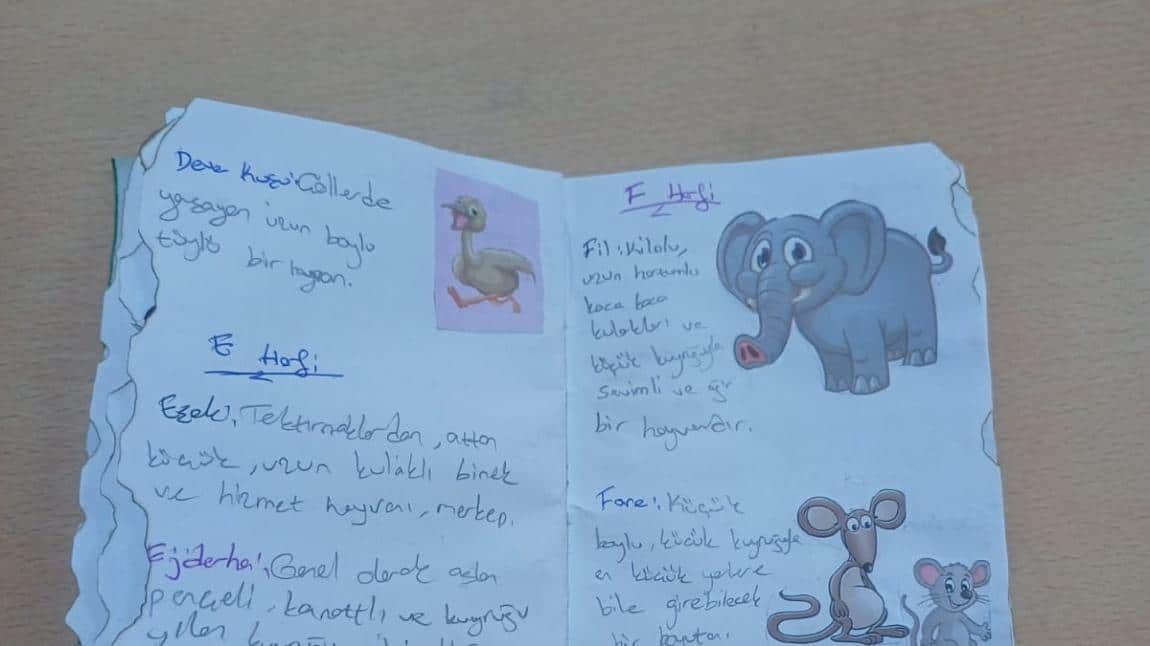 Deve Kuşu: Çöllerde
yaşayan uzun boylu
tüylü bir hayvan.
E Harfi
Eşek: Tektırnaklılardan, attan
küçük, uzun kulaklı binek
ve hizmet hayvanı, merkep.
Ejderha: Genel olarak aslan
pençeli, kanatlı ve kuyruğu
yılan
F Harfi
Fil: Kilolu,
uzun hortumlu
koca koca
kulakları ve
küçük kuyruğuyla
Sevimli ve ağır
bir hayvandır.
Fare: Küçük
boylu, küçük kuyruğuyla
en küçük yerlere
bile girebilecek
bir